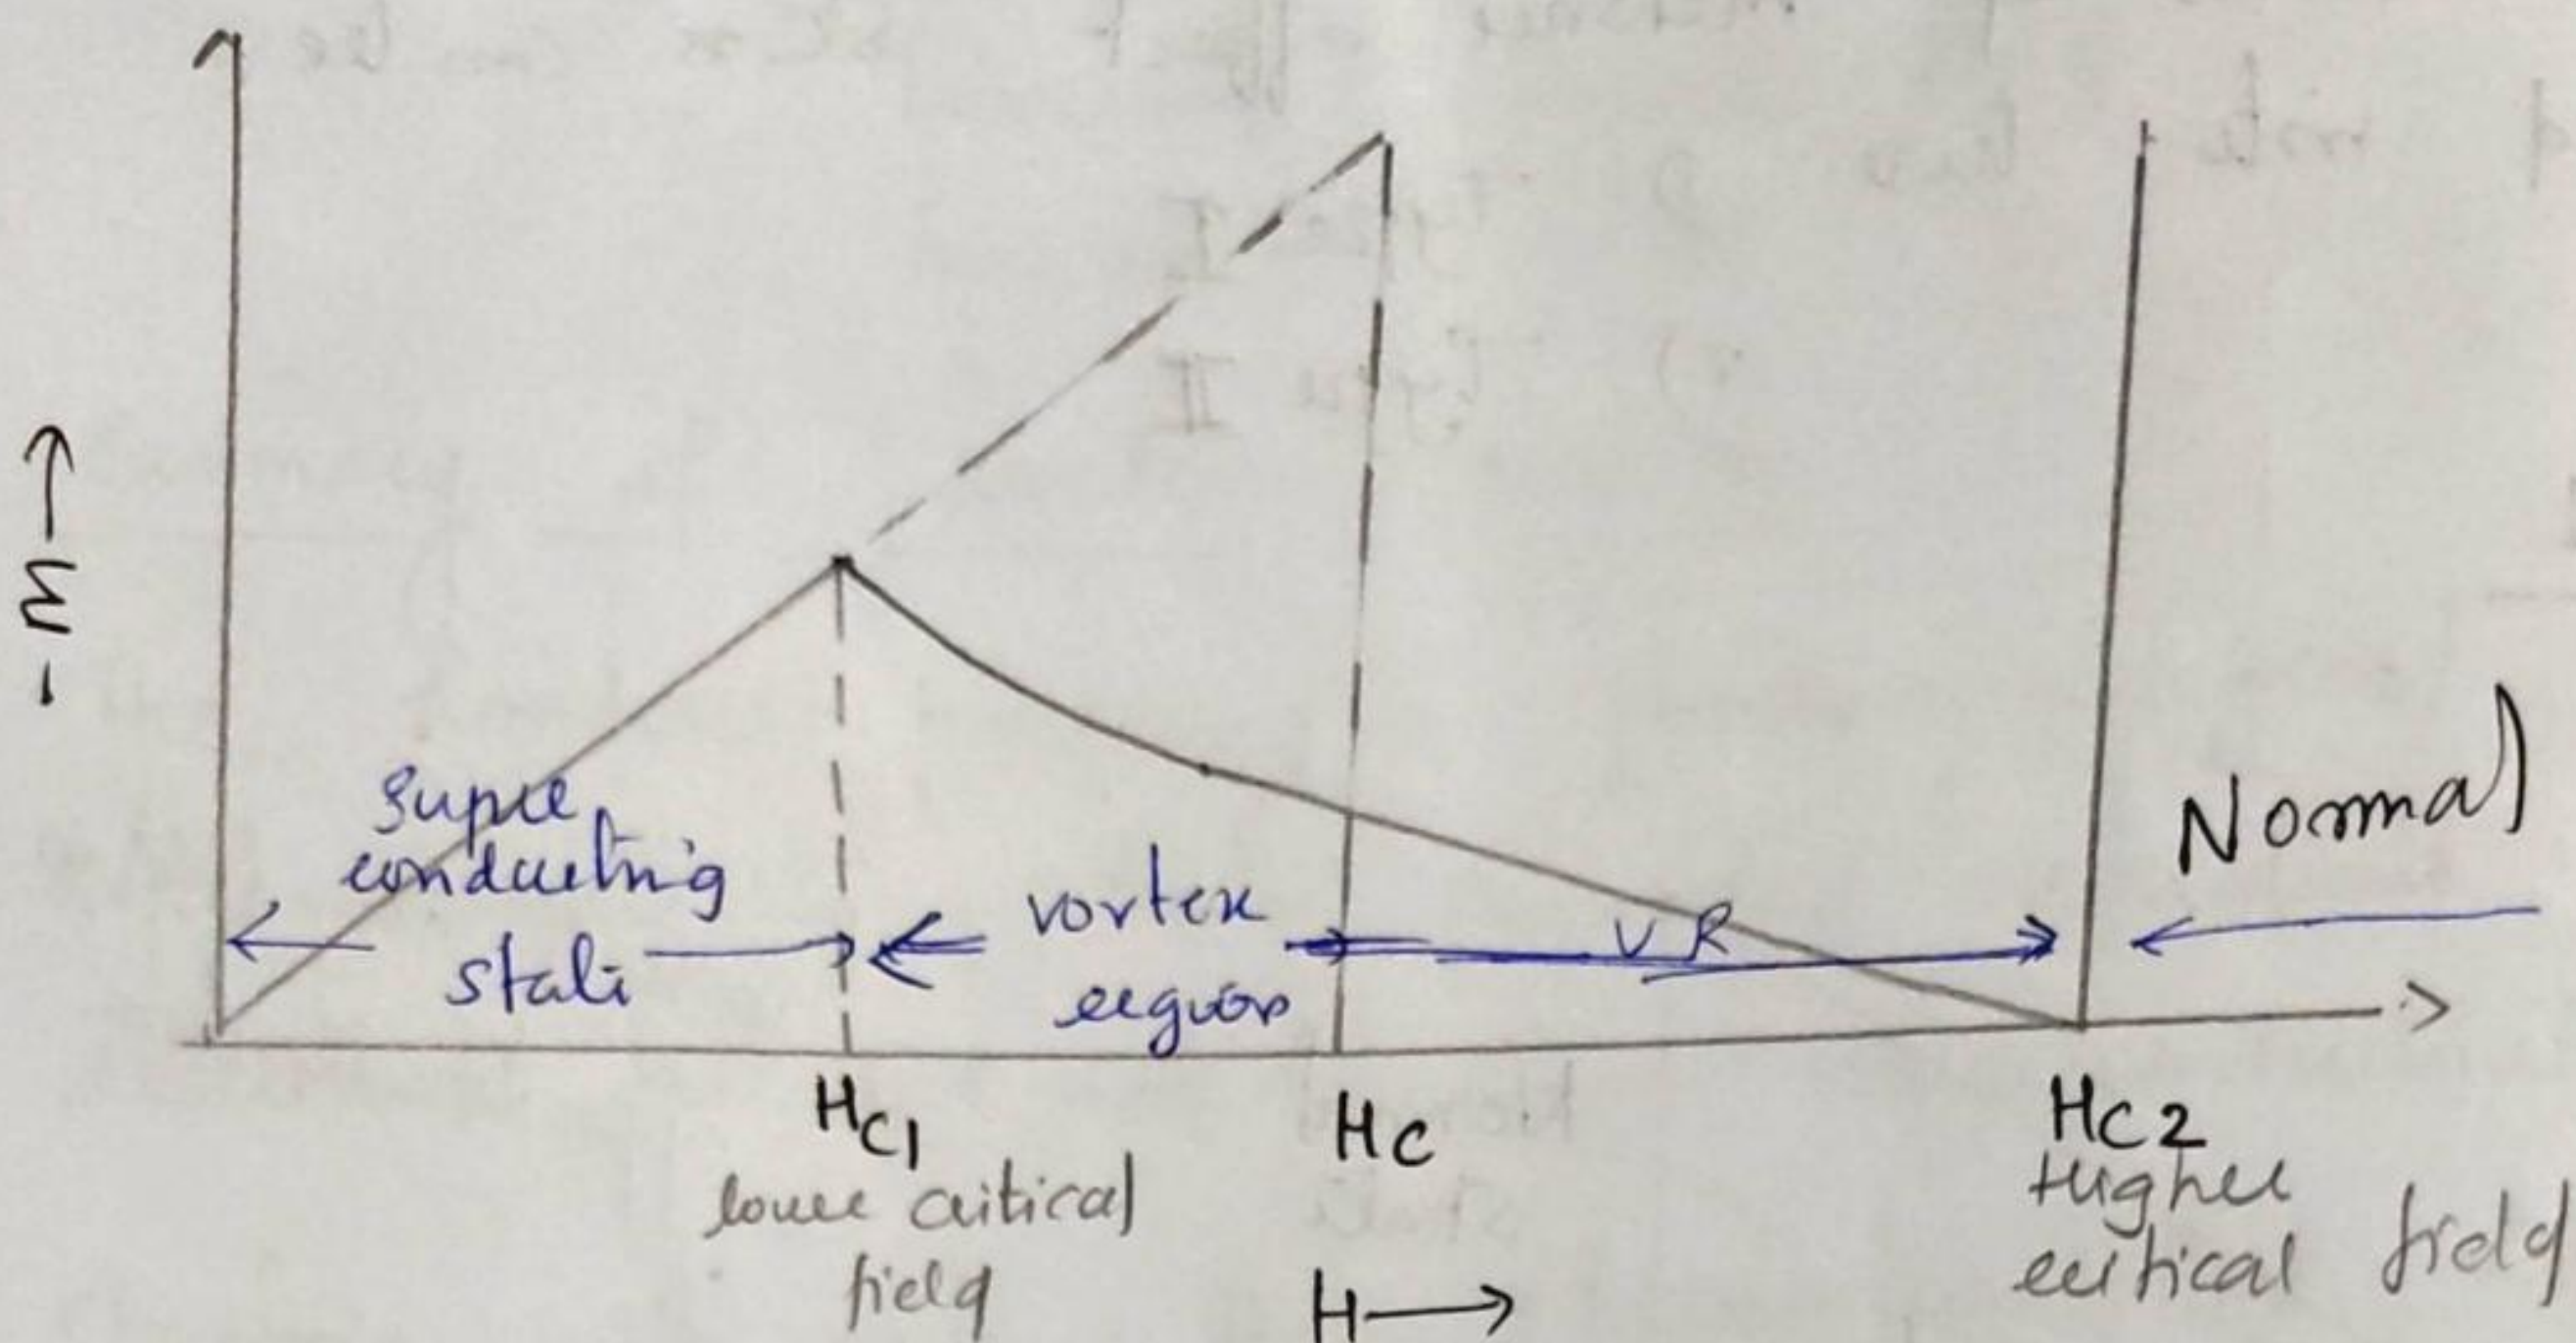 - M →
Super
conducting
state
vortex
region
V R
Normal
Hc1
lower critical
field
Hc
Hc2
Higher
critical field
H →